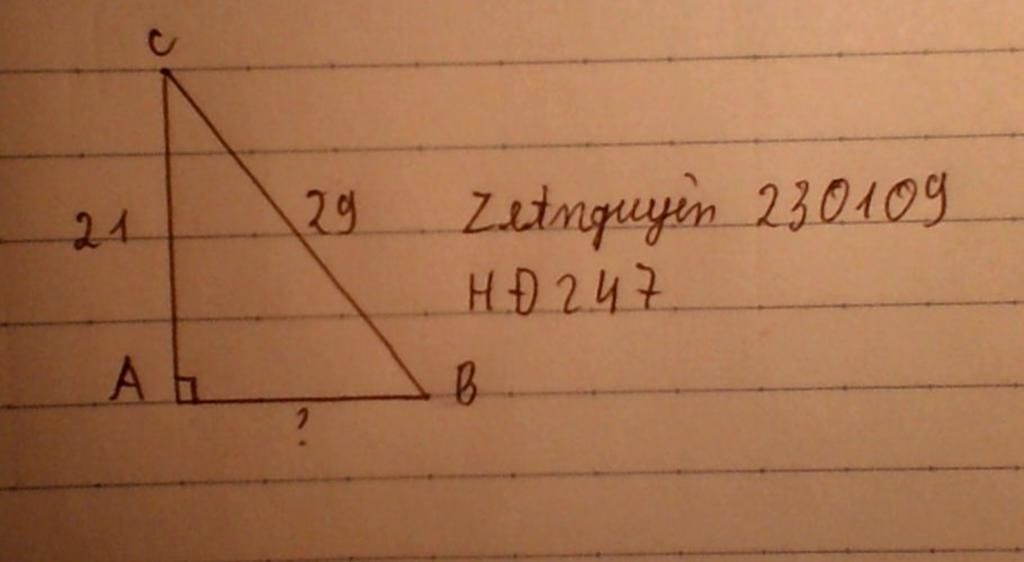 C
21
29
Zetnguyên 230109
HĐ247
A
B
?